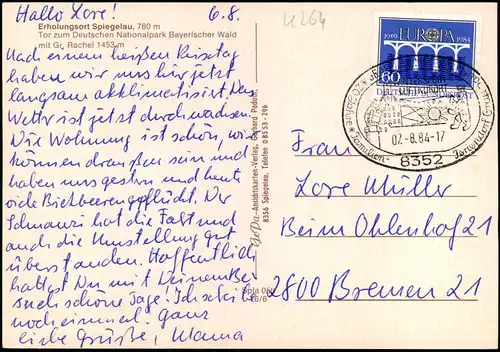 Hallo Lore! 6.8.
4264
Erholungsort Spiegelau, 780 m
Tor zum Deutschen Nationalpark Bayerischer Wald
mit Gr. Rachel 1453 m
Nach einem heißen Reisetag
haben wir uns hier jetzt
langsam akklimatisiert. Das
Wetter ist jetzt durchwachsen.
Die Wohnung ist schön, wir
können draußen sein und
haben uns gestern und heute
viele Bickbeeren gepflückt. Der
Schnauzi hat die Fahrt und
auch die Umstellung gut
überstanden. Hoffentlich
hattest Du mit Deinem Be-
such schöne Tage! Ich schreibe
noch einmal. Ganz
liebe Grüße, Mama
Ansichtskarten-Verlag, Gerhard
8356 Spiegelau, Telefon 0 85 53 - 296
Spia
EUROPA
1959 1984
60
DEUTSCHE BUNDESPOST
LUFTKURORT
07.-8.84-17
Familien- Feriendorf
8352
Frau
Lore Müller
Beim Ohlenhof 21
2800 Bremen 21